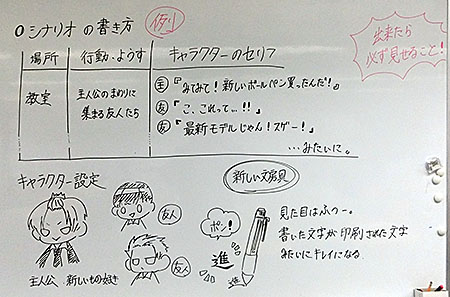 ○シナリオの書き方
例
出来たら
必ず見せること!
場所
行動・ようす
キャラクターのセリフ
教室
主人公のまわりに
集まる友人たち
主『みてみて!新しいボールペン買ったんだ!』
友『こ、これって…!!』
友『最新モデルじゃん!スゲー!』
…みたいに。
キャラクター設定
新しい文房具
友人
友人
主人公 新しいもの好き
ポン!
進
進
見た目はふつー。
書いた文字が印刷された文字
みたいにキレイになる